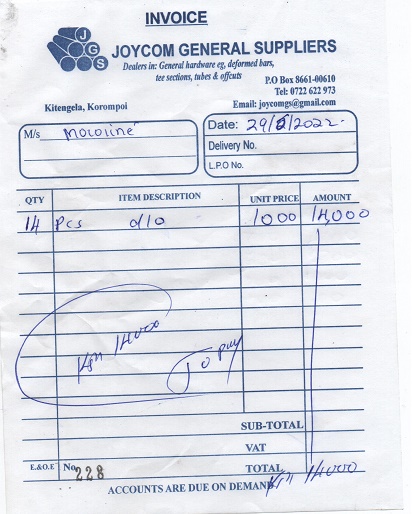 INVOICE
JGS
JOYCOM GENERAL SUPPLIERS
Dealers in: General hardware eg, deformed bars,
tee sections, tubes & offcuts
P.O Box 8661-00610
Tel: 0722 622 973
Kitengela, Korompoi
Email: joycomgs@gmail.com
M/s
Date: 29/6/2022.
Delivery No.
L.P.O No.
QTY ITEM DESCRIPTION UNIT PRICE AMOUNT
14 Pcs d10 1000 14,000
14000
To pay
SUB-TOTAL
VAT
E.&O.E No. 228 TOTAL 14000
ACCOUNTS ARE DUE ON DEMAND